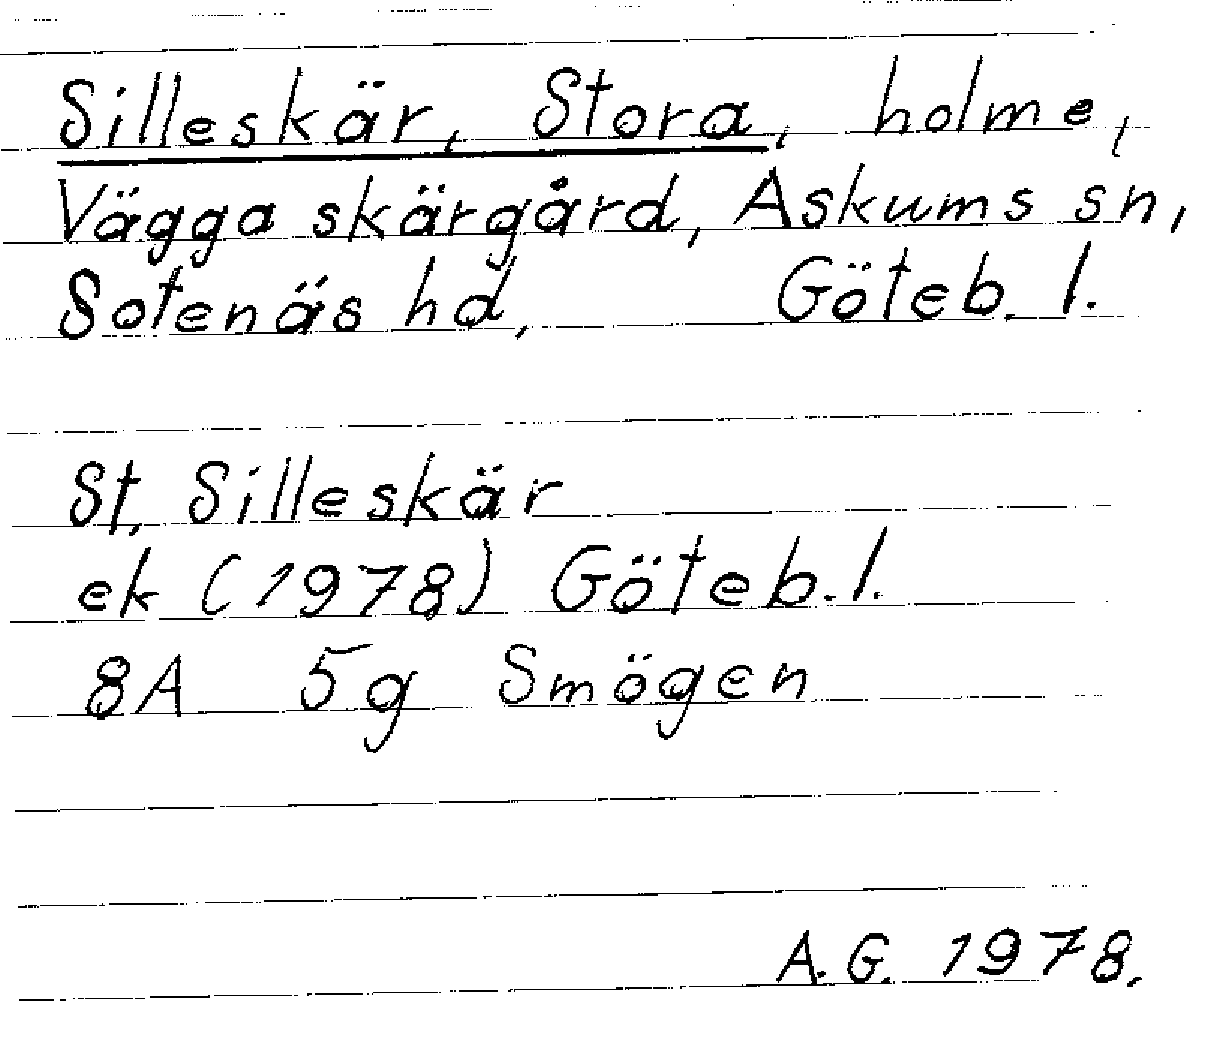 Silleskär, Stora, holme,
Vägga skärgård, Askums sn,
Sotenäs hd, Göteb. l.
St. Silleskär
ek (1978) Göteb. l.
8A 5g Smögen
A.G. 1978.